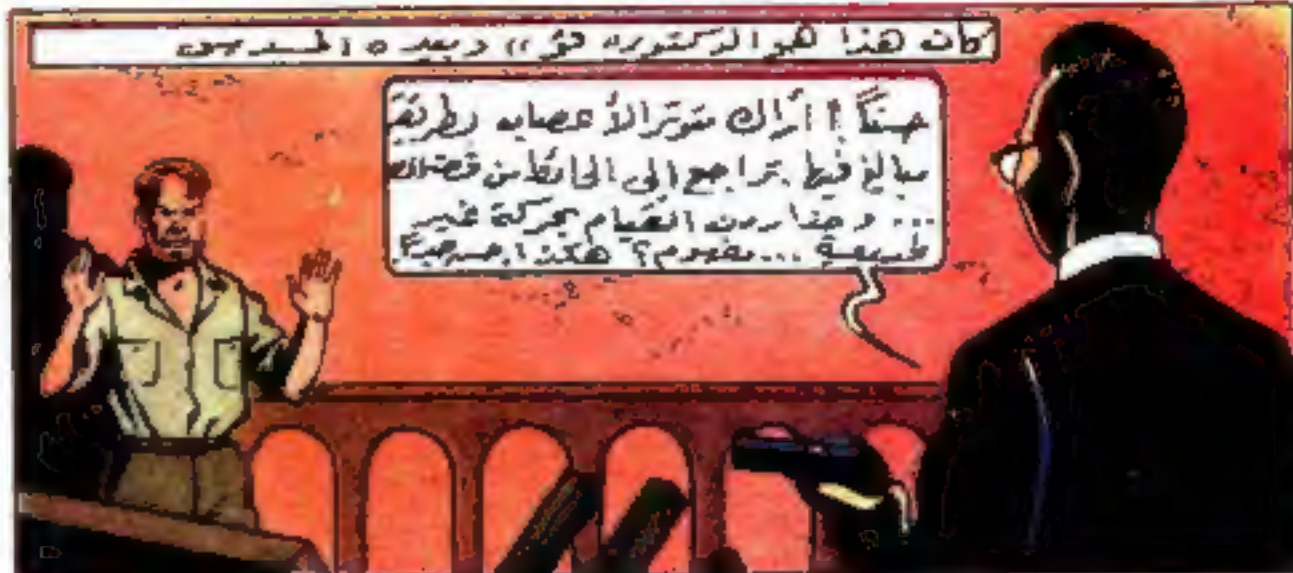 كان هذا هو الدكتور فو" وبيده المسدس
حسناً! أراك متوتر الأعصاب بطريقة
مبالغ فيها تراجع إلى الحائط من فضلك
... وهذا دون القيام بحركة غير
طبيعية ... مفهوم؟ هكذا